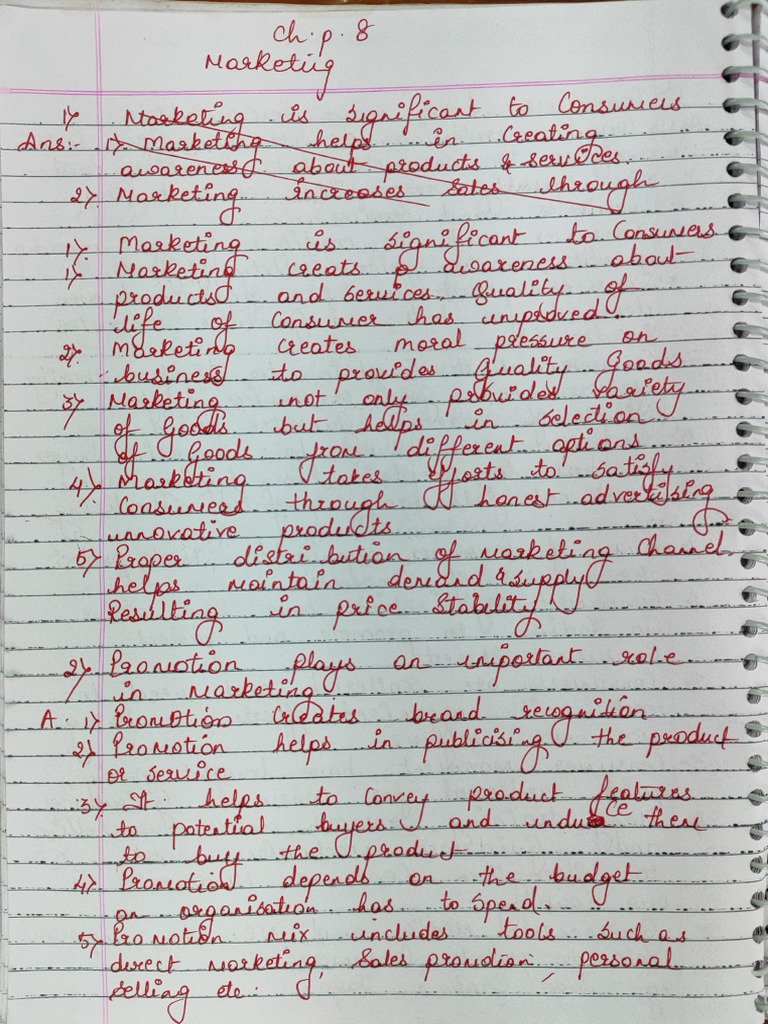 Ch.p. 8
Marketing
1) Marketing is significant to Consumers
Ans:- 1) Marketing helps in Creating
awareness about products & services.
2) Marketing increases Sales through
1) Marketing is significant to Consumers
1) Marketing creats awareness about
products and services. Quality of
life of Consumer has improved.
2) Marketing creates moral pressure on
business to provides Quality Goods
3) Marketing not only provides variety
of Goods but helps in selection
of Goods from different options
4) Marketing takes efforts to satisfy
Consumers through honest advertising
innovative products
5) Proper distribution of marketing Channel
helps maintain demand & supply
Resulting in price Stability
2) Promotion plays an important role
in Marketing
A. 1) Promotion Creates brand recognition
2) Promotion helps in publicising the product
or service
3) It helps to Convey product features
to potential buyers and induce them
to buy the product
4) Promotion depends on the budget
an organisation has to Spend.
5) Promotion mix includes tools such as
direct marketing, Sales promotion, personal
selling etc.